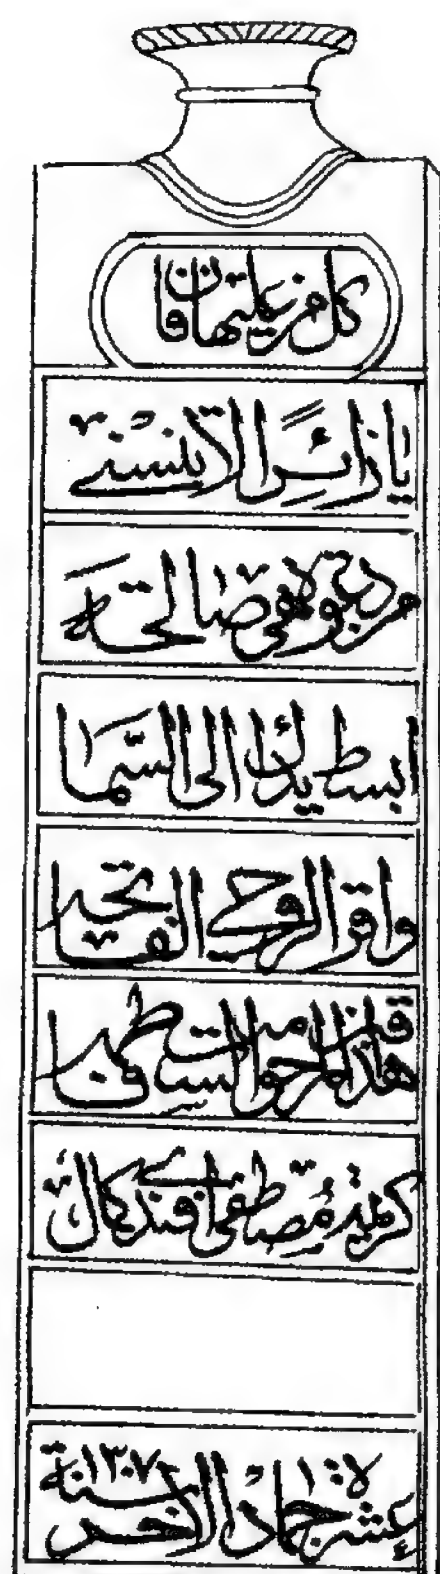 كل من عليها فان
يا زائرا لا تنسني
من دعوة صالحة
ابسط يديك الى السما
واقرا لروحي الفاتحه
هذا قبر الست فاطمه
كريمة مصطفى افندي كمال
عشر جماد الاخر سنة ١٣٠٧